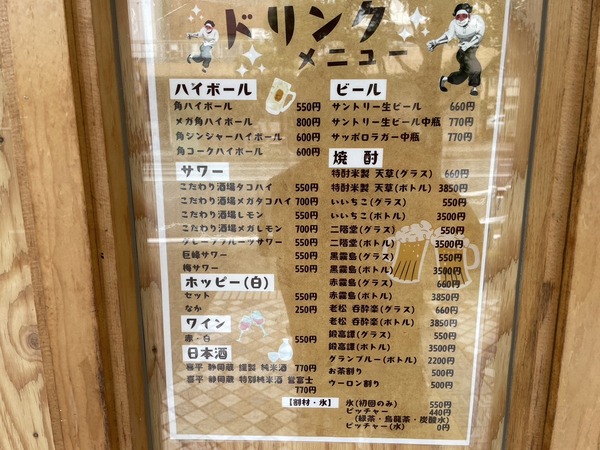 ドリンク
メニュー
ハイボール
角ハイボール 550円
メガ角ハイボール 800円
角ジンジャーハイボール 600円
角コークハイボール 600円
サワー
こだわり酒場タコハイ 550円
こだわり酒場メガタコハイ 700円
こだわり酒場レモン 550円
こだわり酒場メガレモン 700円
グレープフルーツサワー 550円
巨峰サワー 550円
梅サワー 550円
ホッピー(白)
セット 550円
なか 250円
ワイン
赤・白 550円
日本酒
喜平 静岡蔵 謹製 純米酒 770円
喜平 静岡蔵 特別純米酒 誉富士
770円
ビール
サントリー生ビール 660円
サントリー生ビール中瓶 770円
サッポロラガー中瓶 770円
焼酎
特酎米製 天草(グラス) 660円
特酎米製 天草(ボトル) 3850円
いいちこ(グラス) 550円
いいちこ(ボトル) 3500円
二階堂(グラス) 550円
二階堂(ボトル) 3500円
黒霧島(グラス) 550円
黒霧島(ボトル) 3500円
赤霧島(グラス) 660円
赤霧島(ボトル) 3850円
老松 呑酔楽(グラス) 660円
老松 呑酔楽(ボトル) 3850円
鍛高譚(グラス) 550円
鍛高譚(ボトル) 3500円
グランブルー(ボトル) 2200円
お茶割り 500円
ウーロン割り 500円
【割材・氷】 氷(初回のみ) 550円
ピッチャー 440円
(緑茶・烏龍茶・炭酸水)
ピッチャー(水) 0円